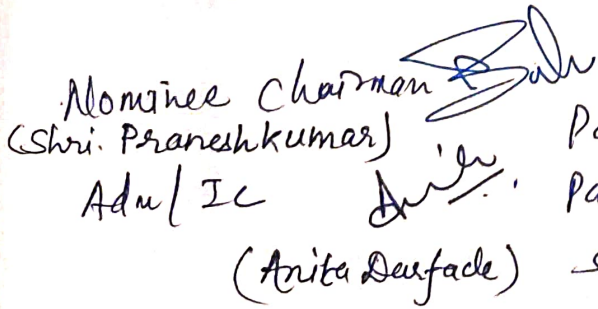 Nominee Chairman
(Shri. Praneshkumar)
Adm/ IC
(Anita Daufade)